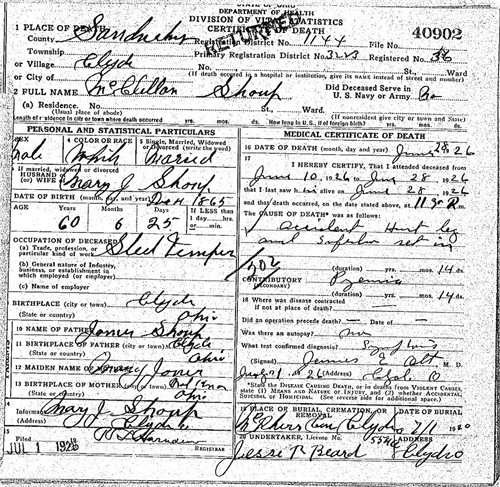 STATE OF OHIO
DEPARTMENT OF HEALTH
DIVISION OF VITAL STATISTICS
CERTIFICATE OF DEATH
40902
1 PLACE OF DEATH
County Sandusky Registration District No. 1144 File No.
Township Primary Registration District No. 3223 Registered No. 36
or Village Clyde No. St., Ward
or City of (If death occurred in a hospital or institution, give its NAME instead of street and number)
2 FULL NAME McClellan Shoup Did Deceased Serve in U. S. Navy or Army No
(a) Residence. No. St., Ward.
(Usual place of abode) (If nonresident give city or town and State)
Length of residence in city or town where death occurred yrs. mos. ds. How long in U. S., if of foreign birth? yrs. mos. ds.
PERSONAL AND STATISTICAL PARTICULARS
SEX Male
4 COLOR OR RACE White
5 Single, Married, Widowed or Divorced (write the word) Married
If married, widowed or divorced
HUSBAND of
(or) WIFE of Mary J Shoup
DATE OF BIRTH (month, day, and year) Dec 1865
AGE Years 60 Months 6 Days 25 If LESS than 1 day, hrs. or min.
OCCUPATION OF DECEASED
(a) Trade, profession, or particular kind of work Steel Temper
(b) General nature of Industry, business, or establishment in which employed (or employer)
(c) Name of employer
BIRTHPLACE (city or town) Clyde
(State or country) Ohio
10 NAME OF FATHER Shoup
11 BIRTHPLACE OF FATHER (city or town) Clyde
(State or country) Ohio
12 MAIDEN NAME OF MOTHER
13 BIRTHPLACE OF MOTHER (city or town)
(State or country) Ohio
14 Informant Mary J. Shoup
(Address) Clyde O
15 Filed JUL 1 1926 REGISTRAR
MEDICAL CERTIFICATE OF DEATH
16 DATE OF DEATH (month, day and year) June 28 1926
17 I HEREBY CERTIFY, That I attended deceased from
June 10, 1926, to 28, 1926
that I last saw him alive on June 28, 1926
and that death occurred, on the date stated above, at
The CAUSE OF DEATH* was as follows:
accident Hurt leg
and set in
202 (duration) yrs. mos. 14 ds.
CONTRIBUTORY
(SECONDARY)
(duration) yrs. mos. 14 ds.
18 Where was disease contracted
if not at place of death?
Did an operation precede death? Date of
Was there an autopsy? no
What test confirmed diagnosis? Symptoms
(Signed) James E Ott, M. D.
1926 (Address) Clyde O
*State the DISEASE CAUSING DEATH, or in deaths from VIOLENT CAUSES, state (1) MEANS AND NATURE OF INJURY, and (2) whether ACCIDENTAL, SUICIDAL, or HOMICIDAL. (See reverse side for additional space.)
19 PLACE OF BURIAL, CREMATION, OR REMOVAL DATE OF BURIAL
McPherson Cem Clyde O 7/1 1920
20 UNDERTAKER, License No.
Jesse R Beard Clyde O